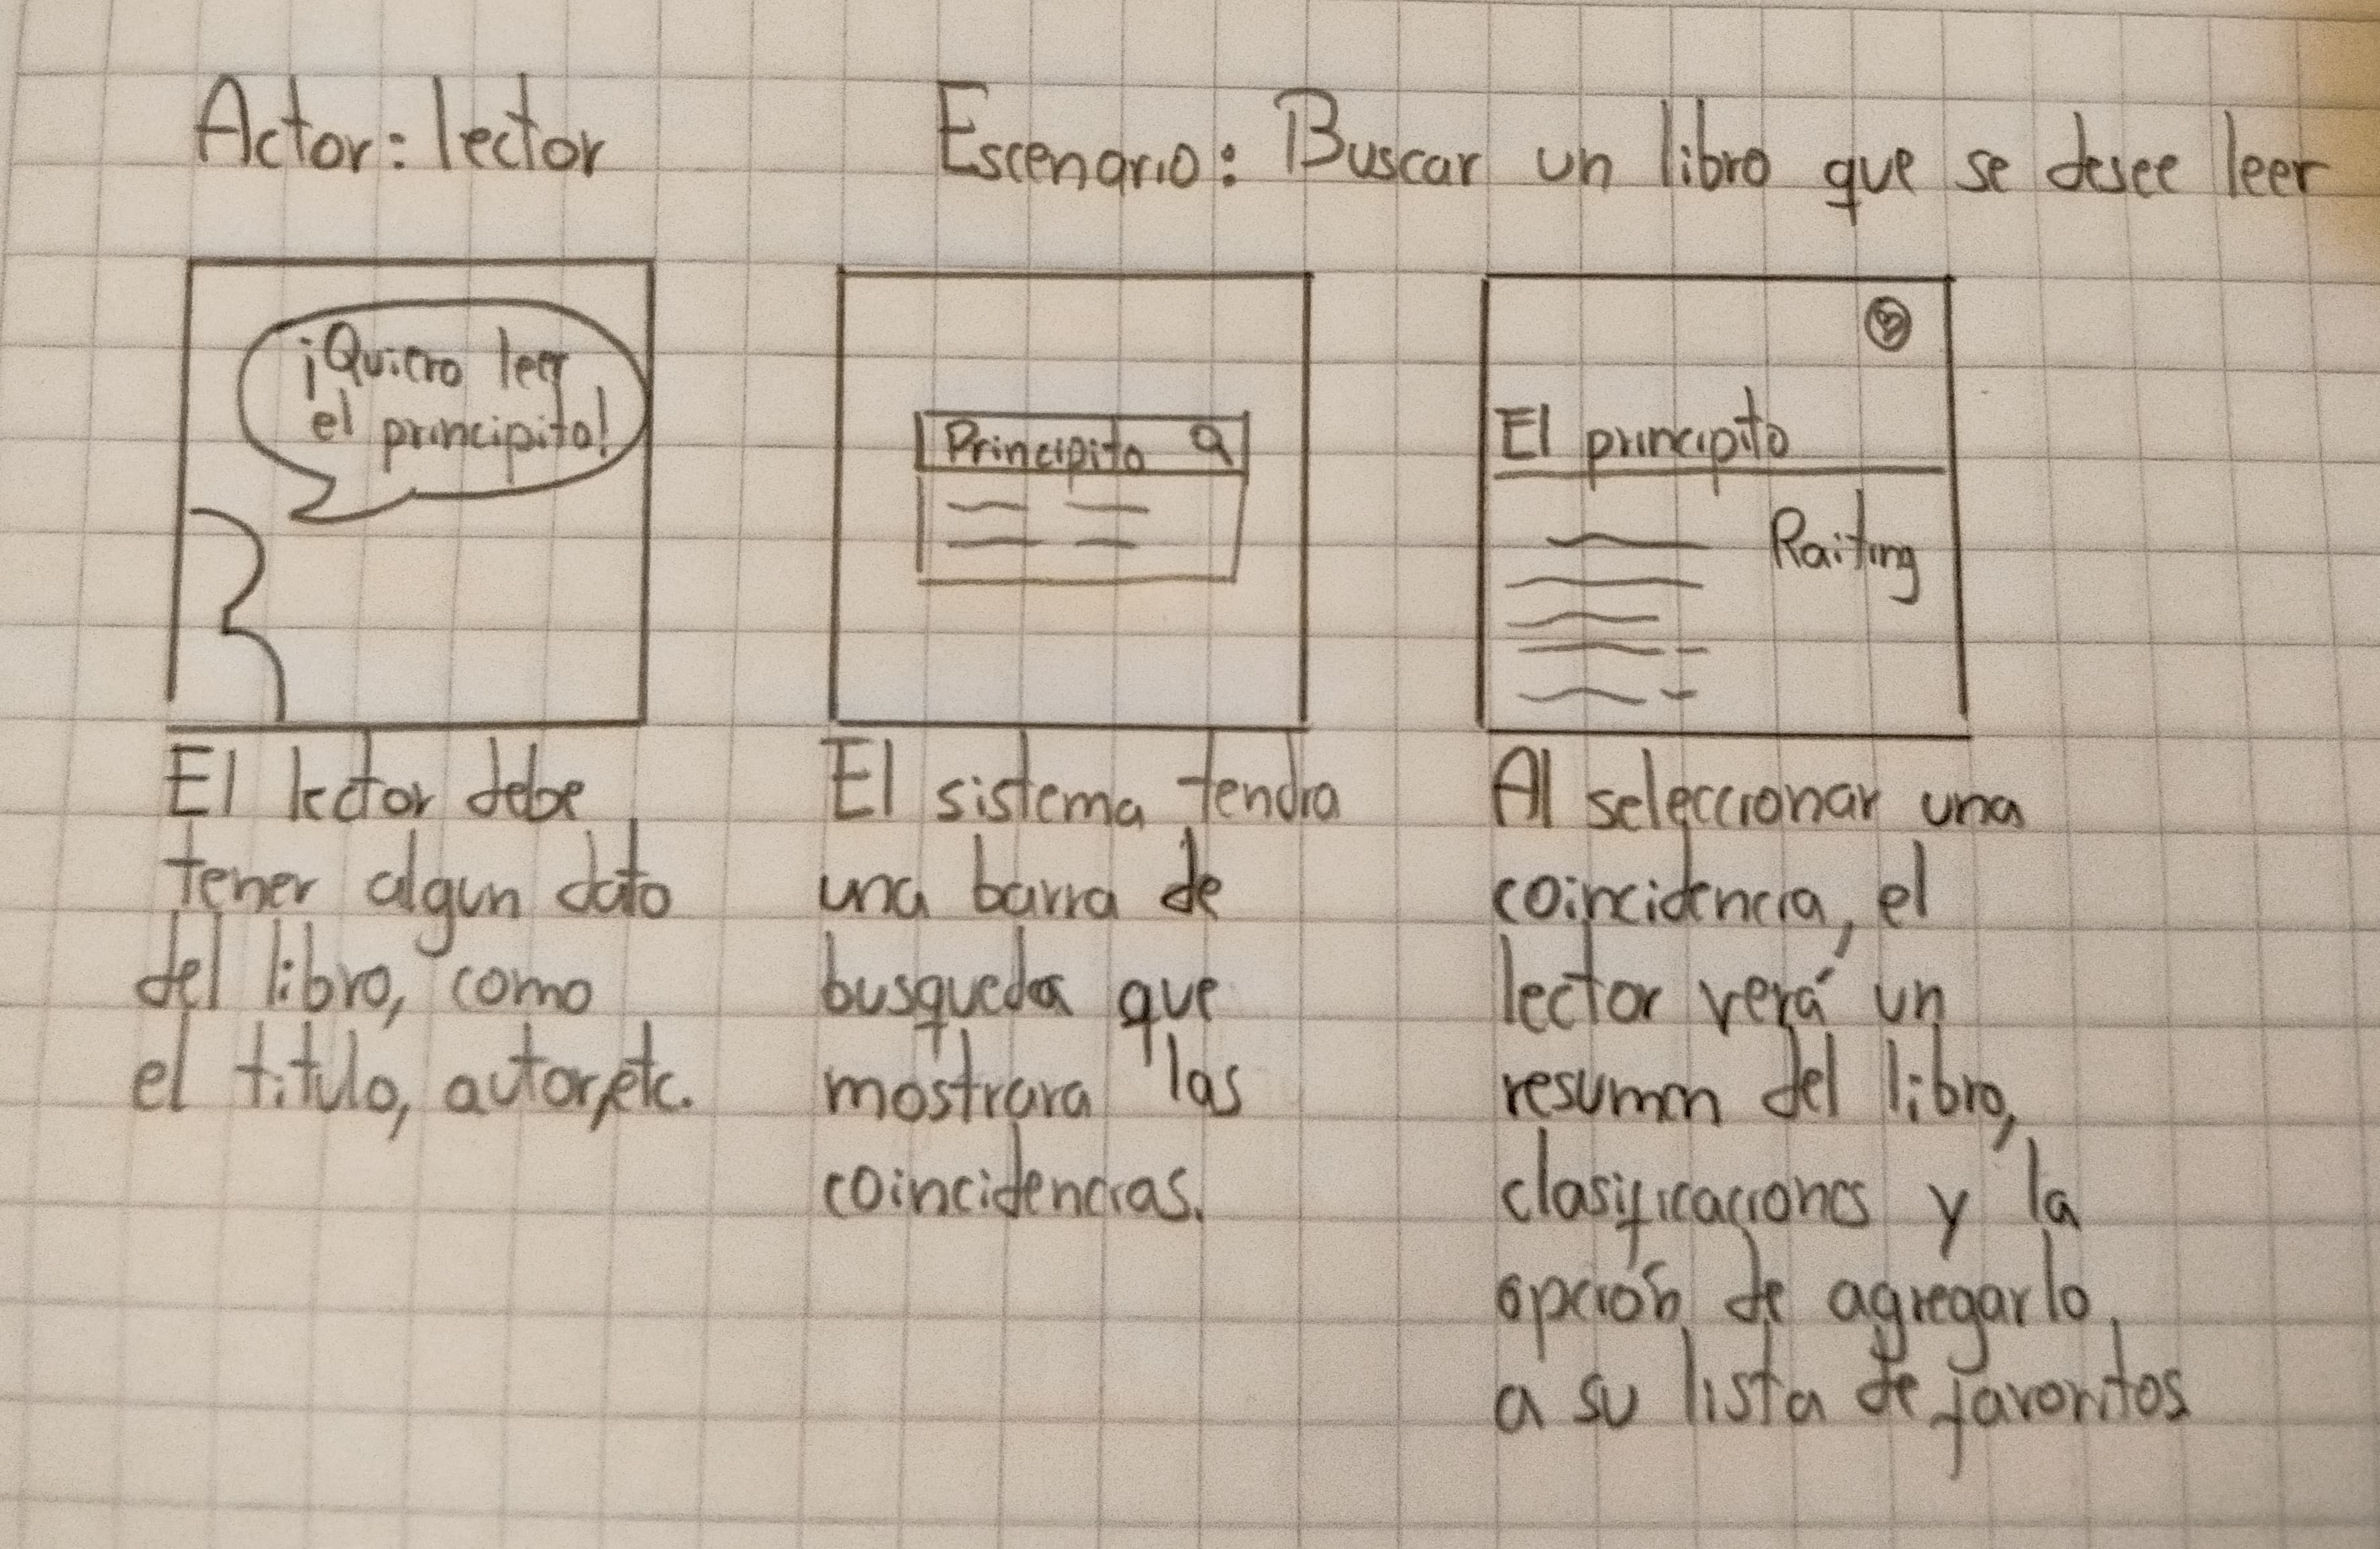 Actor: lector
Escenario: Buscar un libro que se desee leer
¡Quiero leer
el principito!
El lector debe
tener algun dato
del libro, como
el titulo, autor, etc.
Principito
El sistema tendra
una barra de
busqueda que
mostrara las
coincidencias.
El principito
Raiting
Al seleccionar una
coincidencia, el
lector verá un
resumen del libro,
clasificaciones y la
opción de agregarlo
a su lista de favoritos